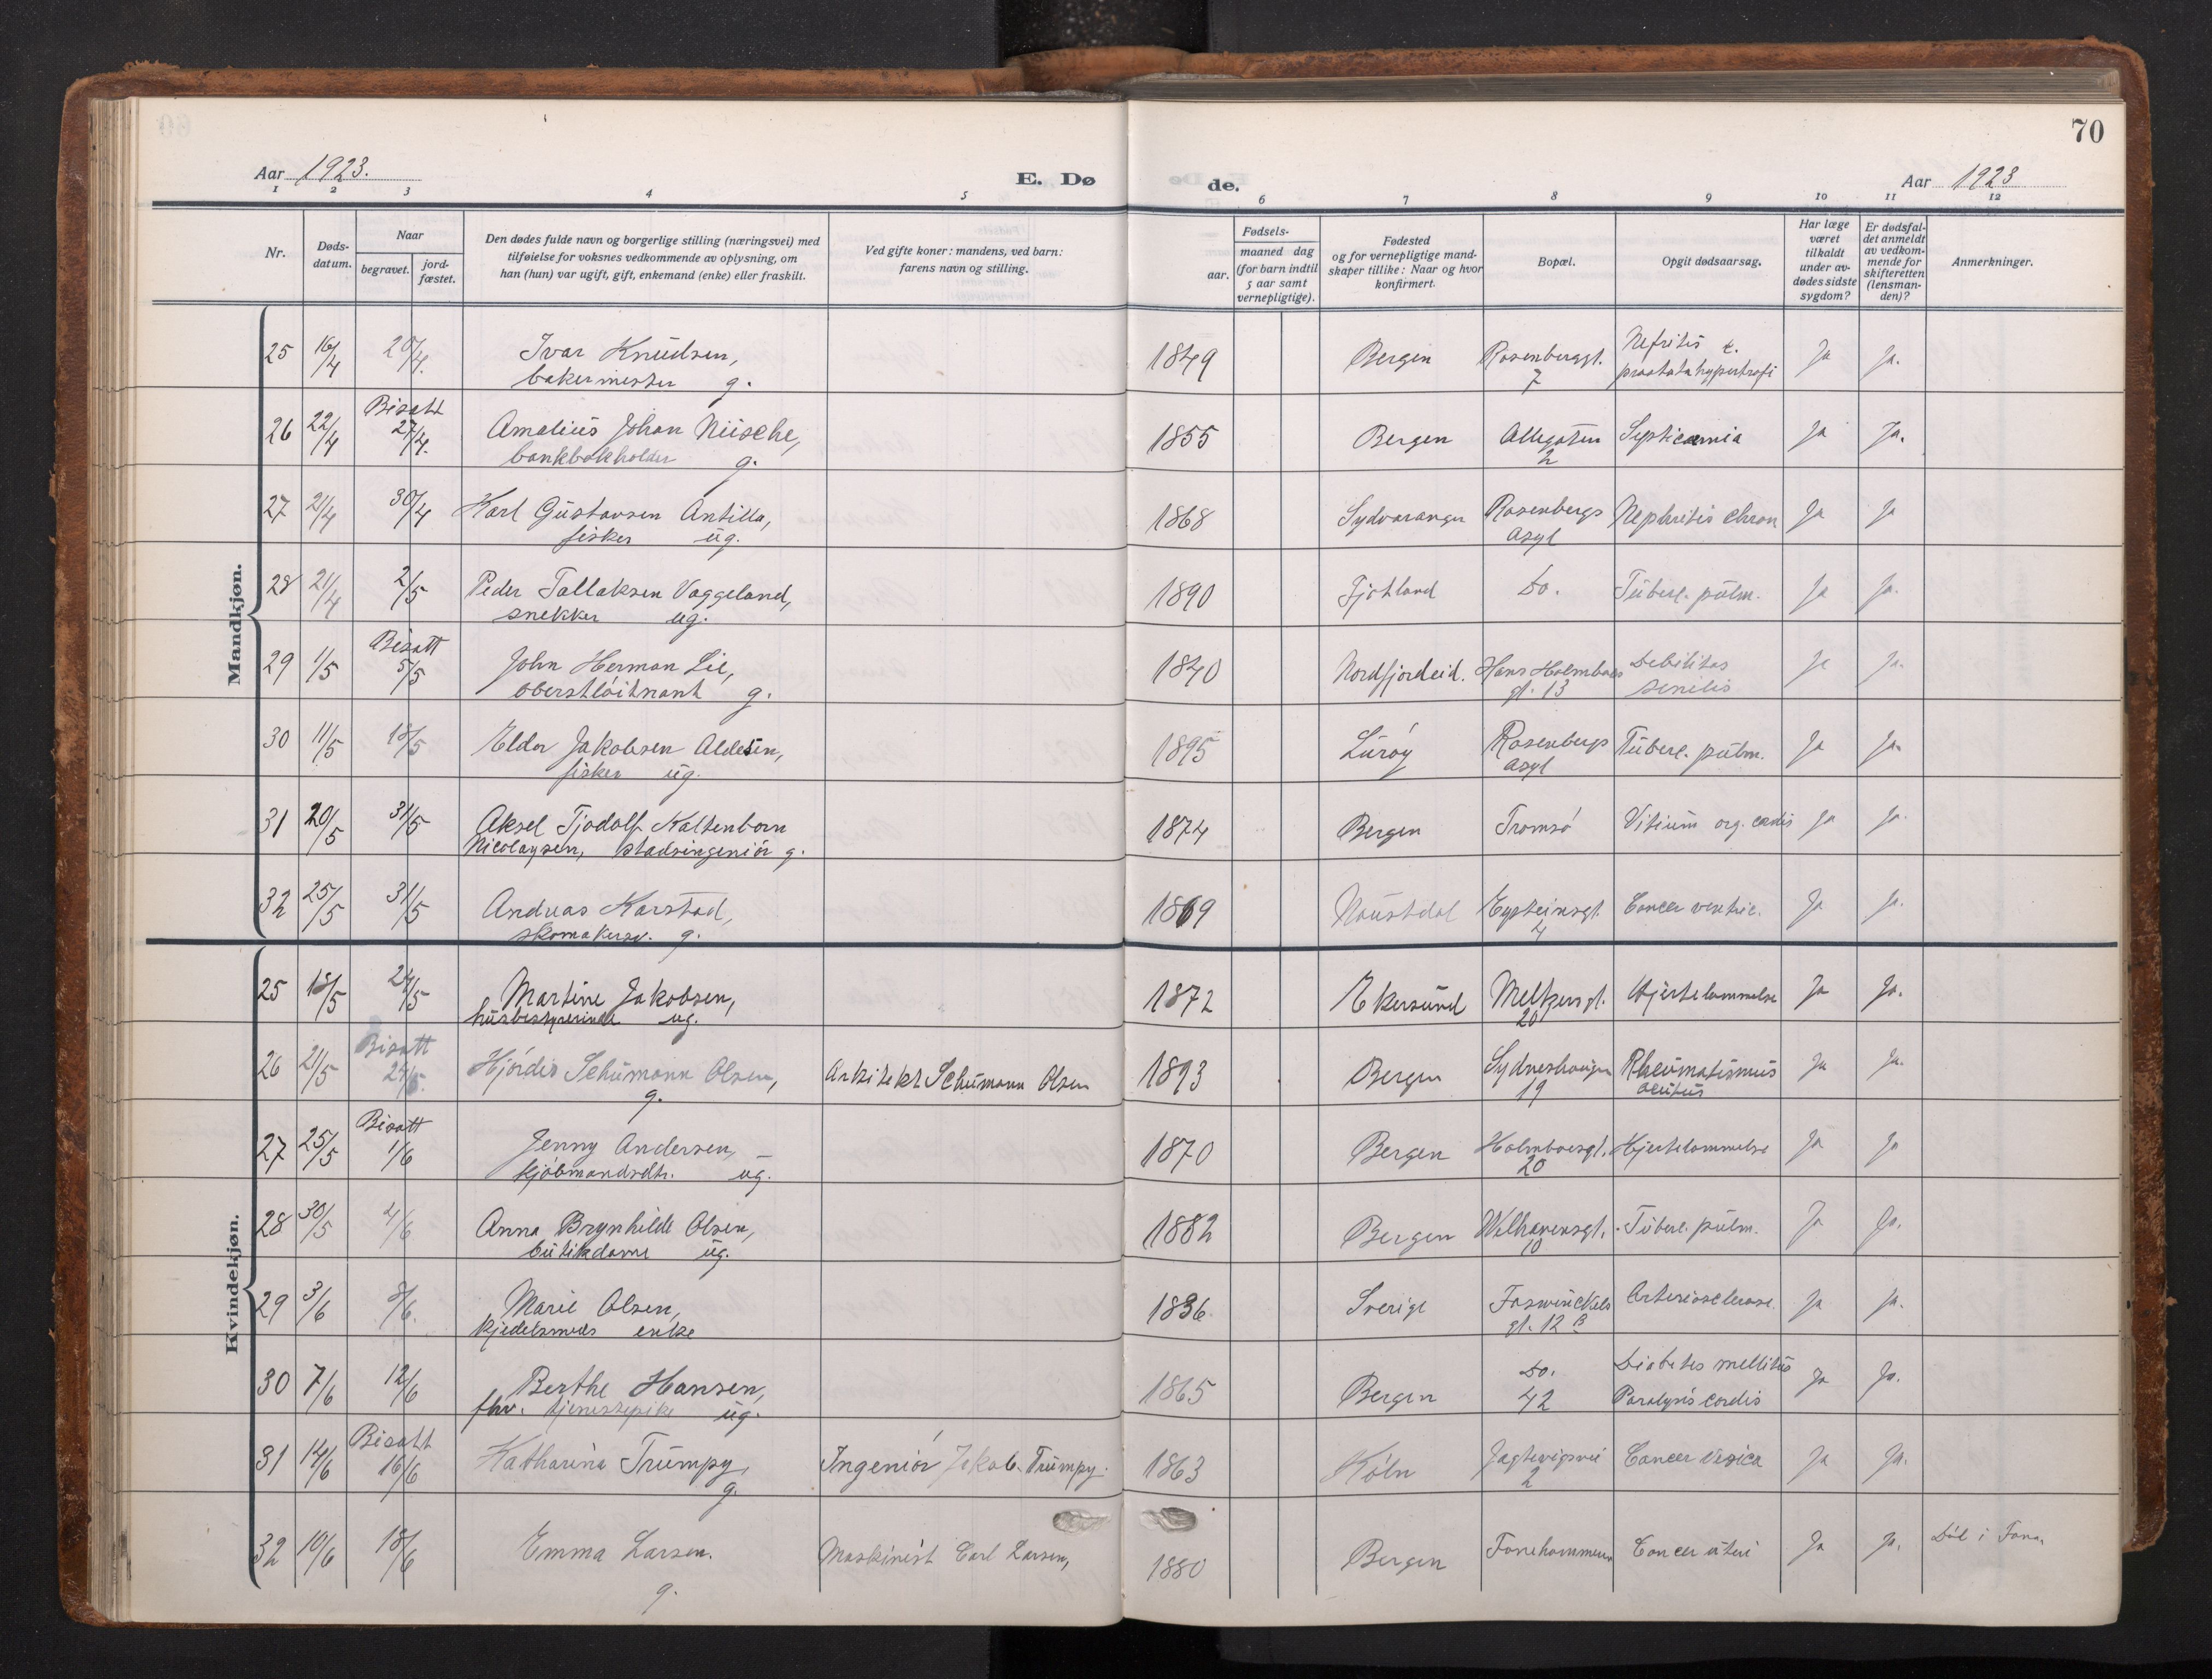 70
Aar 1923. E. Dø de. Aar 1923
1 2 3 4 5 6 7 8 9 10 11 12
Nr.
Døds-datum.
Naar
begravet. jord-fæstet.
Den dødes fulde navn og borgerlige stilling (næringsvei) med
tilføielse for voksnes vedkommende av oplysning, om
han (hun) var ugift, gift, enkemand (enke) eller fraskilt.
Ved gifte koner: mandens, ved barn:
farens navn og stilling.
aar.
Fødsels-
maaned dag
(for barn indtil
5 aar samt
vernepligtige).
Fødested
og for vernepligtige mand-
skaper tillike: Naar og hvor
konfirmert.
Bopæl.
Opgit dødsaarsag.
Har læge
været
tilkaldt
under av-
dødes sidste
sygdom?
Er dødsfal-
det anmeldt
av vedkom-
mende for
skifteretten
(lensman-
den)?
Anmerkninger.
Mandkjøn.
25 16/4 20/4. Ivar Knudsen, 1849 Bergen Rosenberggt. Nefritis c. Ja Ja.
bakermester g. 7 prostatahypertrofi
Bisatt
26 22/4 27/4. Amalius Johan Nüsche, 1855 Bergen Allegaten Septicæmia Ja Ja.
bankbokholder g. 2
27 21/4 30/4 Karl Gustavsen Antilla, 1868 Sydvaranger Rosenbergs Nephritis chron Ja Ja
fisker ug. Asyl
28 21/4 2/5 Peder Tallaksen Vaggeland, 1890 Fjotland Do. Tuberc. pulm. Ja Ja.
snekker ug.
Bisatt
29 1/5 5/5 John Herman Lie, 1840 Nordfjordeid. Hans Holmboes Debilitas Ja Ja.
oberstløitnant g. gt. 13 senilis
30 11/5 18/5 Eldor Jakobsen Aldesen, 1895 Lurøy Rosenbergs Tuberc. pulm. Ja Ja.
fisker ug. Asyl
31 20/5 31/5 Aksel Tjodolf Kaltenborn 1874 Bergen Tromsø Vitium org. cordis Ja Ja.
Nicolaysen, stadsingeniør g.
32 25/5 31/5 Andreas Karstad, 1869 Naustdal Eysteinsgt. Cancer ventric. Ja Ja.
skomakersv. g. 4
Kvindekjøn.
25 18/5 24/5 Martine Jakobsen, 1872 Ekersund Meltzersgt. Hjertelammelse Ja Ja.
husbestyrerinde ug. 20
Bisatt
26 21/5 24/5. Hjørdis Schumann Olsen, Arkitekt Schumann Olsen 1893 Bergen Sydneshaugen Rheumatismus Ja Ja.
g. 19 acutus
Bisatt
27 25/5 1/6 Jenny Andersen, 1870 Bergen Holmboesgt. Hjertelammelse Ja Ja
kjøbmandsdtr. ug. 20
28 30/5 4/6 Anna Brynhilde Olsen, 1882 Bergen Welhavensgt. Tuberc. pulm. Ja Ja.
butikdame ug. 10
29 3/6 8/6. Marie Olsen, 1836. Sverige Foswinckels Arteriosclerose. Ja Ja.
kjedelsmeds enke gt. 12 B
30 7/6 12/6 Berthe Hansen, 1865 Bergen Do. Diabetes mellitus Ja Ja.
fhv. tjenestepike ug. 42 Paralysis cordis
Bisatt
31 14/6 16/6 Katharina Trumpy, Ingeniør Jakob Trumpy. 1863 Köln Jægtevigsvei Cancer vesica Ja Ja.
g. 2
32 10/6 18/6 Emma Larsen. Maskinist Carl Larsen, 1880 Bergen Cancer uteri Ja Ja. Død i Fana.
g.